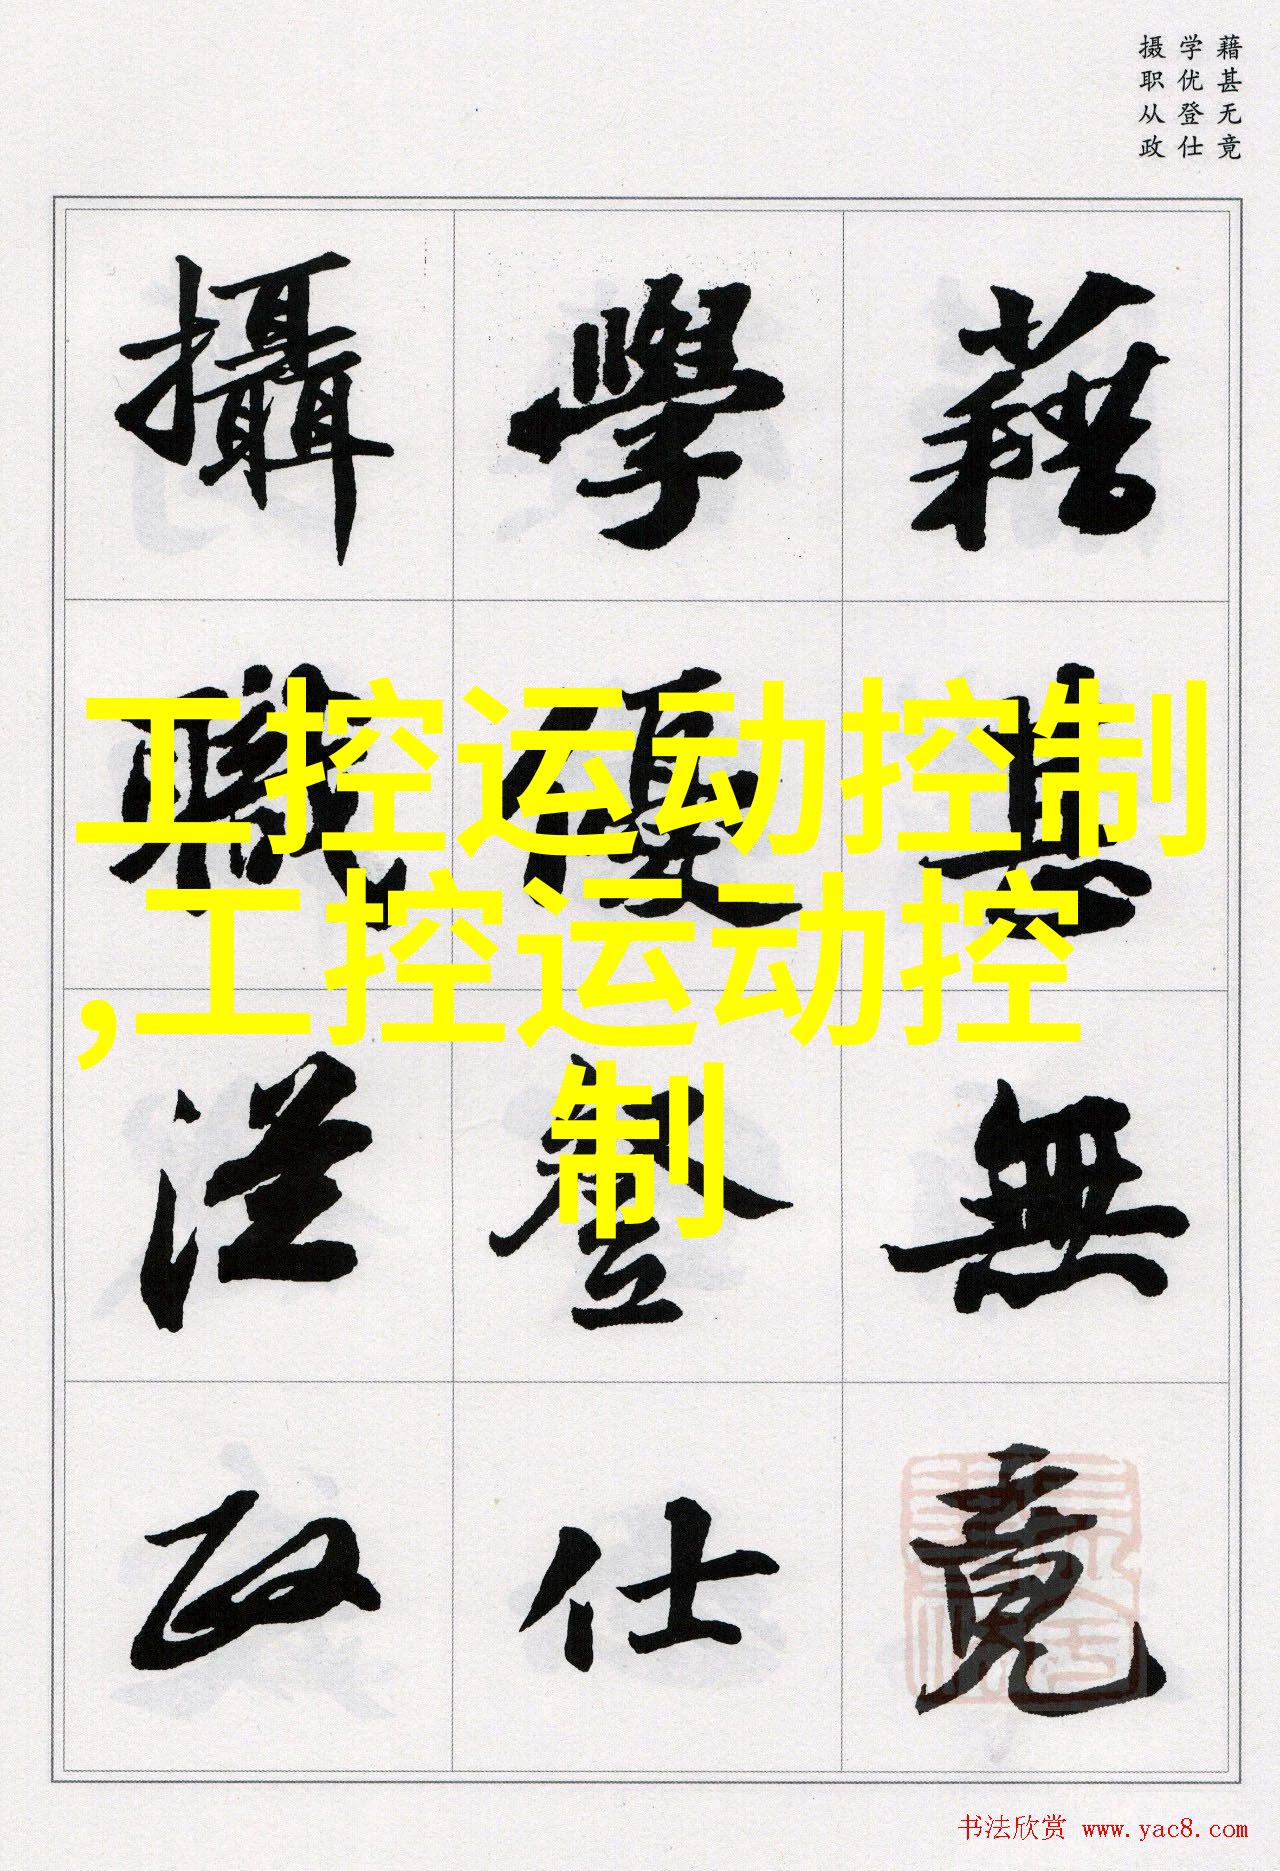 藉甚无竟
学优登仕
摄职从政
藉甚無竟
學優登仕
攝職從政
工控运动控制
,工控运动控
制
书法欣赏 www.yac8.com